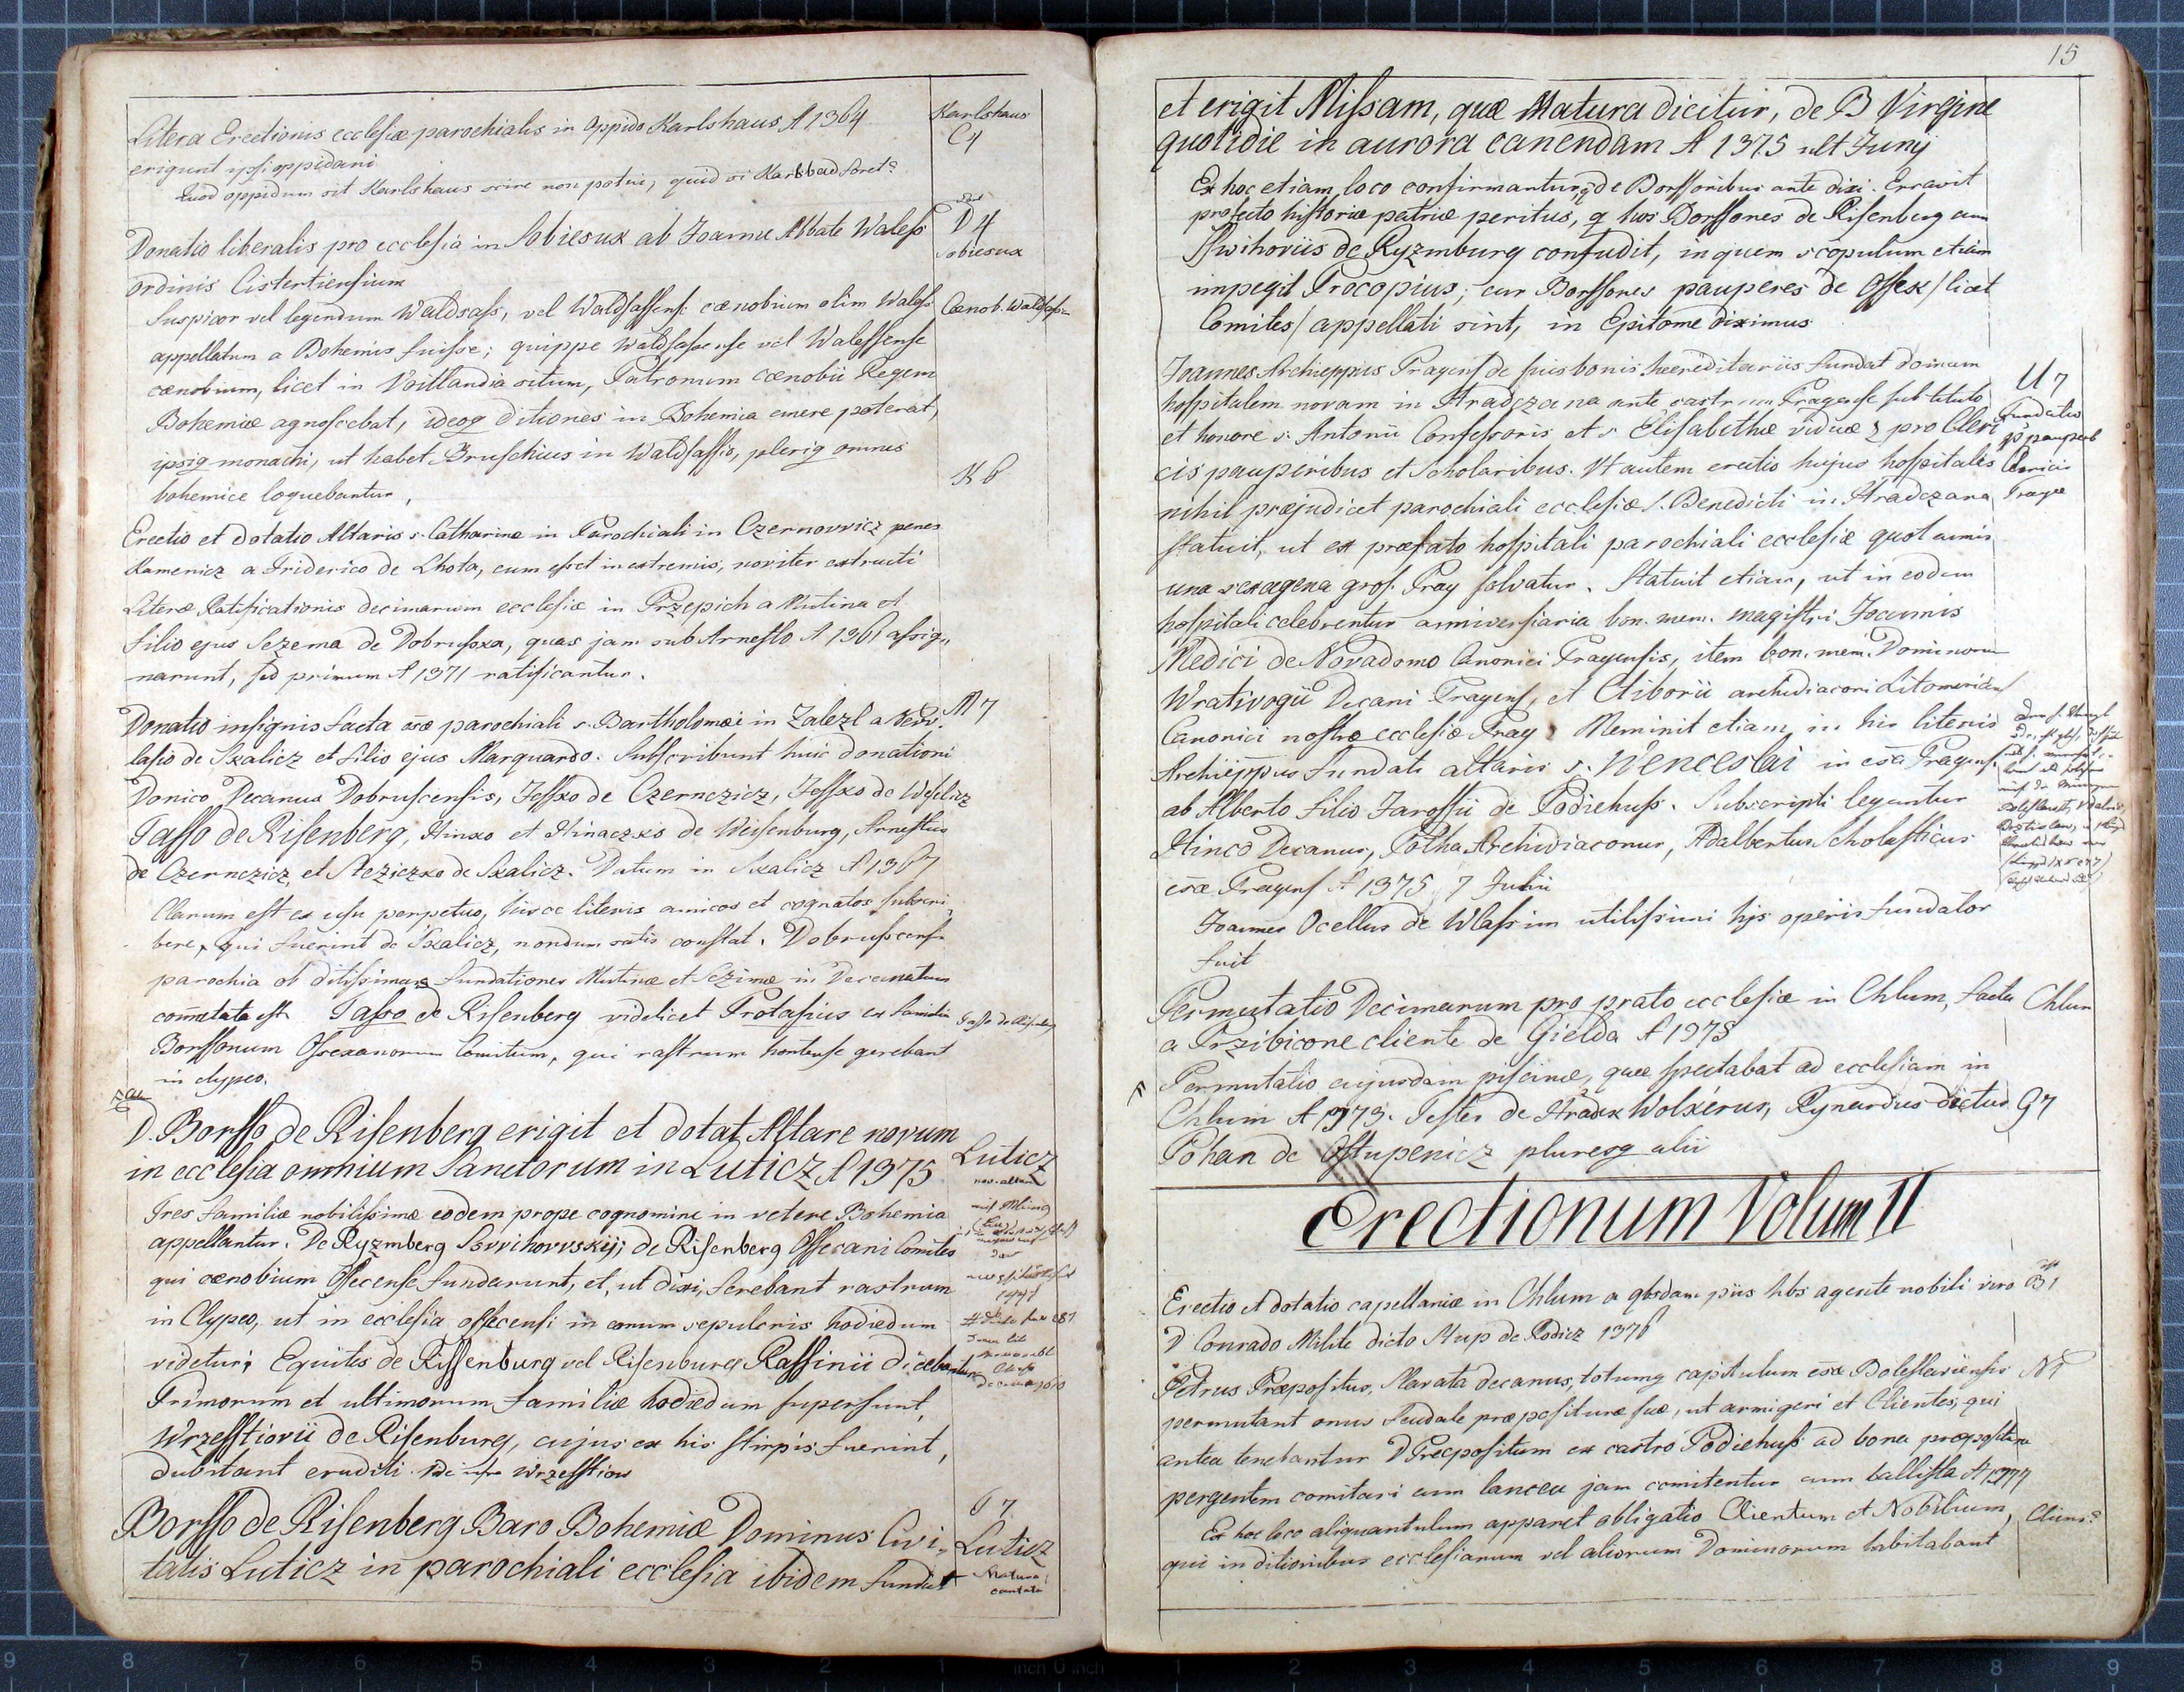 Litera Erectionis ecclesiæ parochialis in oppido Karlshaus A 1364
erigunt ipsi oppidani
Quod oppidum sit Karlshaus scire non potui, quid si Karlsbad foret?
Donatio liberalis pro ecclesia in Sobiesux ab Joanne Abbate Waless
ordinis Cistertiensium
Suspicor vel legendum Waldsass, vel Waldsassens. cænobium olim Waless
appellatum a Bohemis fuisse; quippe Waldsassense vel Walessense
cænobium, licet in Voitlandia situm, Patronum cænobii Regem
Bohemiæ agnoscebat, ideoq ditiones in Bohemia emere poterat,
ipsiq monachi, ut habet Bruschius in Waldsassis, pleriq omnes
bohemice loquebantur,
Erectio et dotatio Altaris s. Catharinæ in Parochiali in Czernovvicz penes
Kamenicz a Friderico de Lhota, cum esset in extremis, noviter extructi
Literæ Ratificationis decimarum ecclesiæ in Przepich a Mutina et
filio ejus Sezema de Dobrussxa, quas jam sub Arnesto A 1361 assig„
narunt, sed primum A 1371 ratificantur.
Donatio insignis facta eccæ parochiali s. Bartholomæi in Zalezl a
lasio de Skalicz et filio ejus Marquardo. Subscribunt huic donationi
Donico Decanus Dobruscensis, Jessxo de Czernczicz, Jessxo de Wesselicz
Tasso de Risenberg, Hinxo et Hinaczxo de Weisenburg, Arnestus
de Czernczicz, et Steziczxo de Skalicz. Datum in Skalicz A 1367
Clarum est ex usu perpetuo, hisce literis amicos et cognatos subscri„
bere, qui fuerint de Skalicz, nondum satis constat. Dobruscens.
parochia ob ditissimas fundationes Mutinæ et Sezimæ in Decanatum
comutata est. Tasso de Risenberg videlicet Protasius ex familia
Borssonum Ossexanorum Comitum, qui rastrum hortense gerebant
in clypeo.
D. Borsso de Risenberg erigit et dotat Altare novum
in ecclesia omnium Sanctorum in Luticz A 1375
Tres familiæ nobilissimæ eodem prope cognomine in vetere Bohemia
appellantur. De Ryzmberg Ssvvihovvskij; de Risenberg Ossecani Comites
qui cænobium Ossecense fundarunt, et, ut dixi, ferebant rastrum
in Clypeo, ut in ecclesia ossecensi in eorum sepulcris hodiedum
videtur; Equites de Rissenburg vel Risenburg Rassinii dicebantur
Primorum et ultimorum familiæ hodiedum supersunt,
Wrzesstiovii de Risenburg, cujus ex his stirpis fuerint,
dubitant eruditi. Vide infra Wrzesstiow
Borsso de Risenberg Baro Bohemiæ Dominus Civi„
tatis Luticz in parochiali ecclesia ibidem fundat
Karlshaus
C4
D 4
Sobiesux
Cænob. Waldsass.
K 6
M 7
Tasso de Risenberg
Luticz
nov. altare
T 7
Luticz
Matura
cantata
15
et erigit Missam, quæ Matura dicitur, de B Virgine
quotidie in aurora canendam A 1375 ult Junij
Ex hoc etiam loco confirmantur q de Borssonibus ante dixi. Erravit
profecto historiæ patriæ peritus, q hos Borssones de Risenberg cum
Sswihoviis de Ryzmburg confudit, in quem scopulum etiam
impegit Procopius; cur Borssones pauperes de Ossex/licet
Comites/ appellati sint, in Epitome diximus
Joannes Archieppus Pragens de suis bonis hæreditariis fundat domum
hospitalem novam in Hradczana ante castrum Pragense sub titulo
et honore s. Antonii Confessoris et s. Elisabethæ viduæ pro Cleri
cis pauperibus et Scholaribus. Ut autem erectio hujus hospitalis
nihil præjudicet parochiali ecclesiæ s. Benedicti in Hradczana
statuit, ut ex præfato hospitali parochiali ecclesiæ quot annis
una sexagena gros. Prag solvatur. Statuit etiam, ut in eodem
hospitali celebrentur anniversaria bon. mem. magistri
Medici de Novadomo Canonici Pragensis, item bon. mem. Dominorum
Wrativogii Decani Pragens, et Ctiborii archidiaconi Litomericens
Canonici nostræ ecclesiæ Prag. Meminit etiam in his literis
Archieppus fundati altaris s. Wenceslai in ecca Pragens.
ab Alberto filio Jarossii de Podiehuss. Subscripti leguntur
Hinco Decanus, Potha Archidiaconus, Adalbertus Scholasticus
eccæ Pragens A 1375 7 Julii
Joannes Ocellus de Wlassim utilissimi hjs operis fundator
fuit
Permutatio Decimarum pro prato ecclesiæ in Chlum, facta
a Przibicone cliente de Gielda A 1973
Permutatio cujusdam piscinæ, quæ spectabat ad ecclesiam in
Chlum A 1373. Testes de Hradex Wolxerus, Rynardus dictus
Pohan de Ostupenicz pluresq alii
Erectionum Volum II
Erectio et dotatio capellaniæ in Chlum a qbsdam piis hbs agente nobili viro
D Conrado Milite dicto Stup de Rodicz 1376
Petrus Præpositus, Slavata decanus, totumq capitulum eccæ Boleslaviensis
permutant onus feudale præpositura suæ, ut armigeri et Clientes, qui
antea tenebantur D Præpositum ex castro Podiehuss ad bona præpositura
pergentem comitari cum lancea jam comitentur cum ballista A 1377
Ex hoc loco aliquantulum apparet obligatio Clientum et Nobilium,
qui in ditionibus ecclesiarum vel aliorum Dominorum habitabant
U 7
Fundatio
pauperib
Clericis
Pragæ
Chlum
G 7
B 1
Cliens?